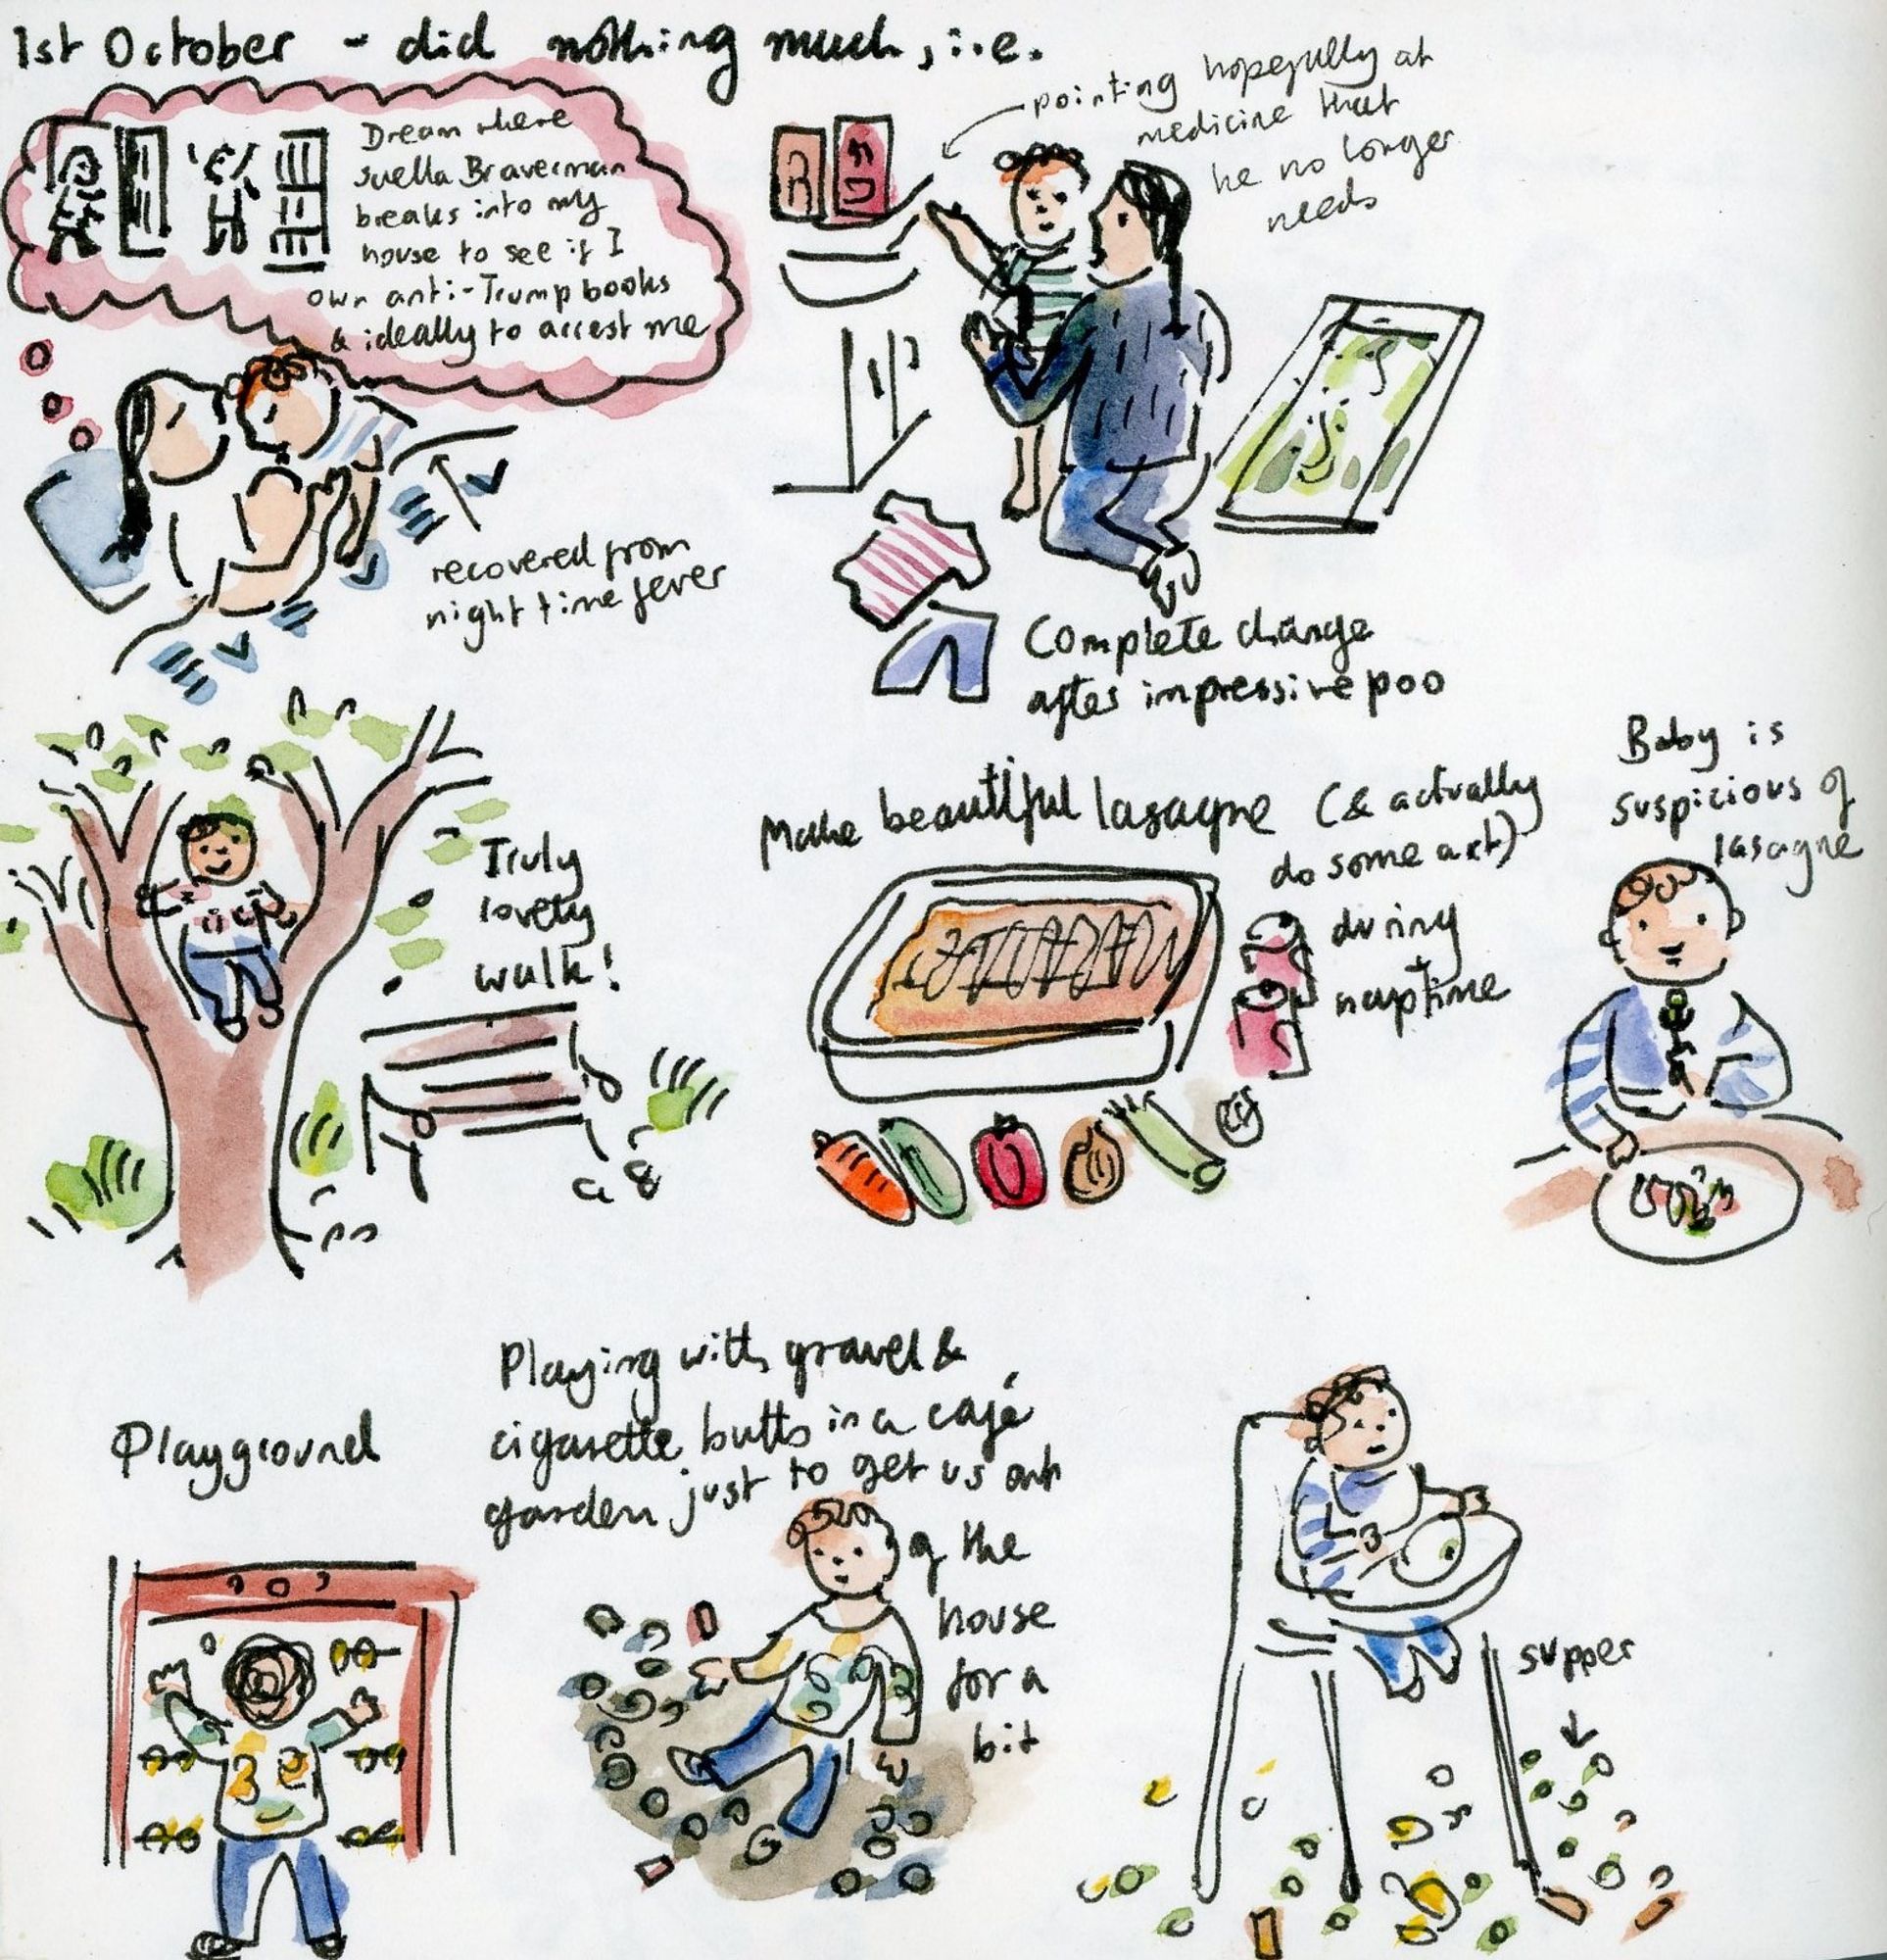 1st October - did nothing much, i.e.
Dream where
Suella Braverman
breaks into my
house to see if I
own anti-Trump books
& ideally to arrest me
recovered from
night time fever
pointing hopefully at
medicine that
he no longer
needs
Complete change
after impressive poo
Truly
lovely
walk!
Make beautiful lasagne (& actually
do some art)
during
naptime
Baby is
suspicious of
lasagne
Playground
Playing with gravel &
cigarette butts in a café
garden just to get us out
of the
house
for a
bit
supper